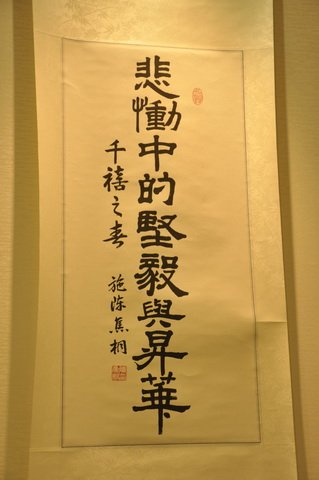 悲慟中的堅毅與昇華
千禧之春
施陳焦桐